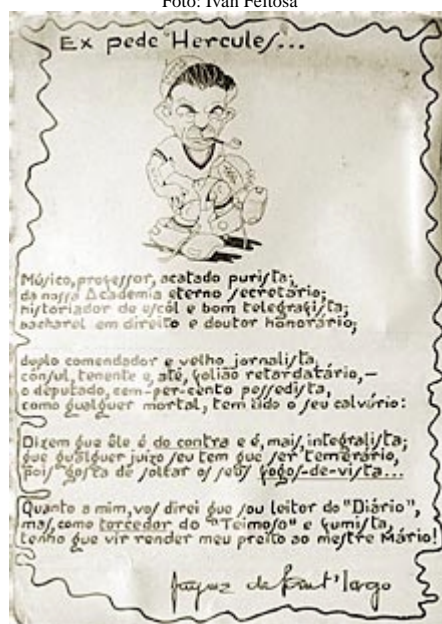 Foto: Ivan Feitosa
Ex pede Hercules...
Músico, professor, acatado purista;
da nossa Academia eterno secretário;
historiador de escól e bom telegrafista;
bacharel em direito e doutor honorário;
duplo comendador e velho jornalista,
cônsul, tenente e, até, folião retardatário,—
o deputado, cem-per-cento possedista,
como qualquer mortal, tem tido o seu calvário:
Dizem que êle é do contra e é, mais, integralista;
que qualquer juizo seu tem que ser temerário,
pois gosta de soltar os seus fogos-de-vista...
Quanto a mim, vos direi que sou leitor do "Diário",
mas, como torcedor do "Teimoso" e fumista,
tenho que vir render meu preito ao mestre Mário!